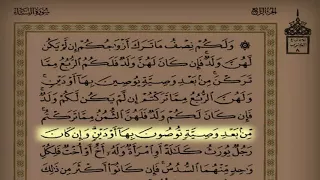 الجزء الرابع
سورة النساء
۞ وَلَكُمْ نِصْفُ مَا تَرَكَ أَزْوَٰجُكُمْ إِن لَّمْ يَكُن
لَّهُنَّ وَلَدٌ فَإِن كَانَ لَهُنَّ وَلَدٌ فَلَكُمُ ٱلرُّبُعُ مِمَّا
تَرَكْنَ مِنۢ بَعْدِ وَصِيَّةٍ يُوصِينَ بِهَآ أَوْ دَيْنٍ
وَلَهُنَّ ٱلرُّبُعُ مِمَّا تَرَكْتُمْ إِن لَّمْ يَكُن لَّكُمْ وَلَدٌ
فَإِن كَانَ لَكُمْ وَلَدٌ فَلَهُنَّ ٱلثُّمُنُ مِمَّا تَرَكْتُم
مِّنۢ بَعْدِ وَصِيَّةٍ تُوصُونَ بِهَآ أَوْ دَيْنٍ وَإِن كَانَ
رَجُلٌ يُورَثُ كَلَٰلَةً أَوِ ٱمْرَأَةٌ وَلَهُۥٓ أَخٌ أَوْ أُخْتٌ فَلِكُلِّ
وَٰحِدٍ مِّنْهُمَا ٱلسُّدُسُ فَإِن كَانُوٓا۟ أَكْثَرَ مِن ذَٰلِكَ